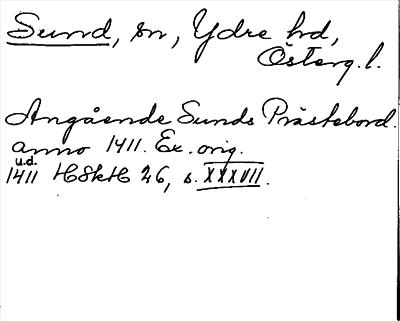 Sund, sn, Ydre hd,
Österg.l.
Angående Sunds Prästebord.
anno 1411. Ex. orig.
u.d.
1411 HSkH 26, s. XXXVII.